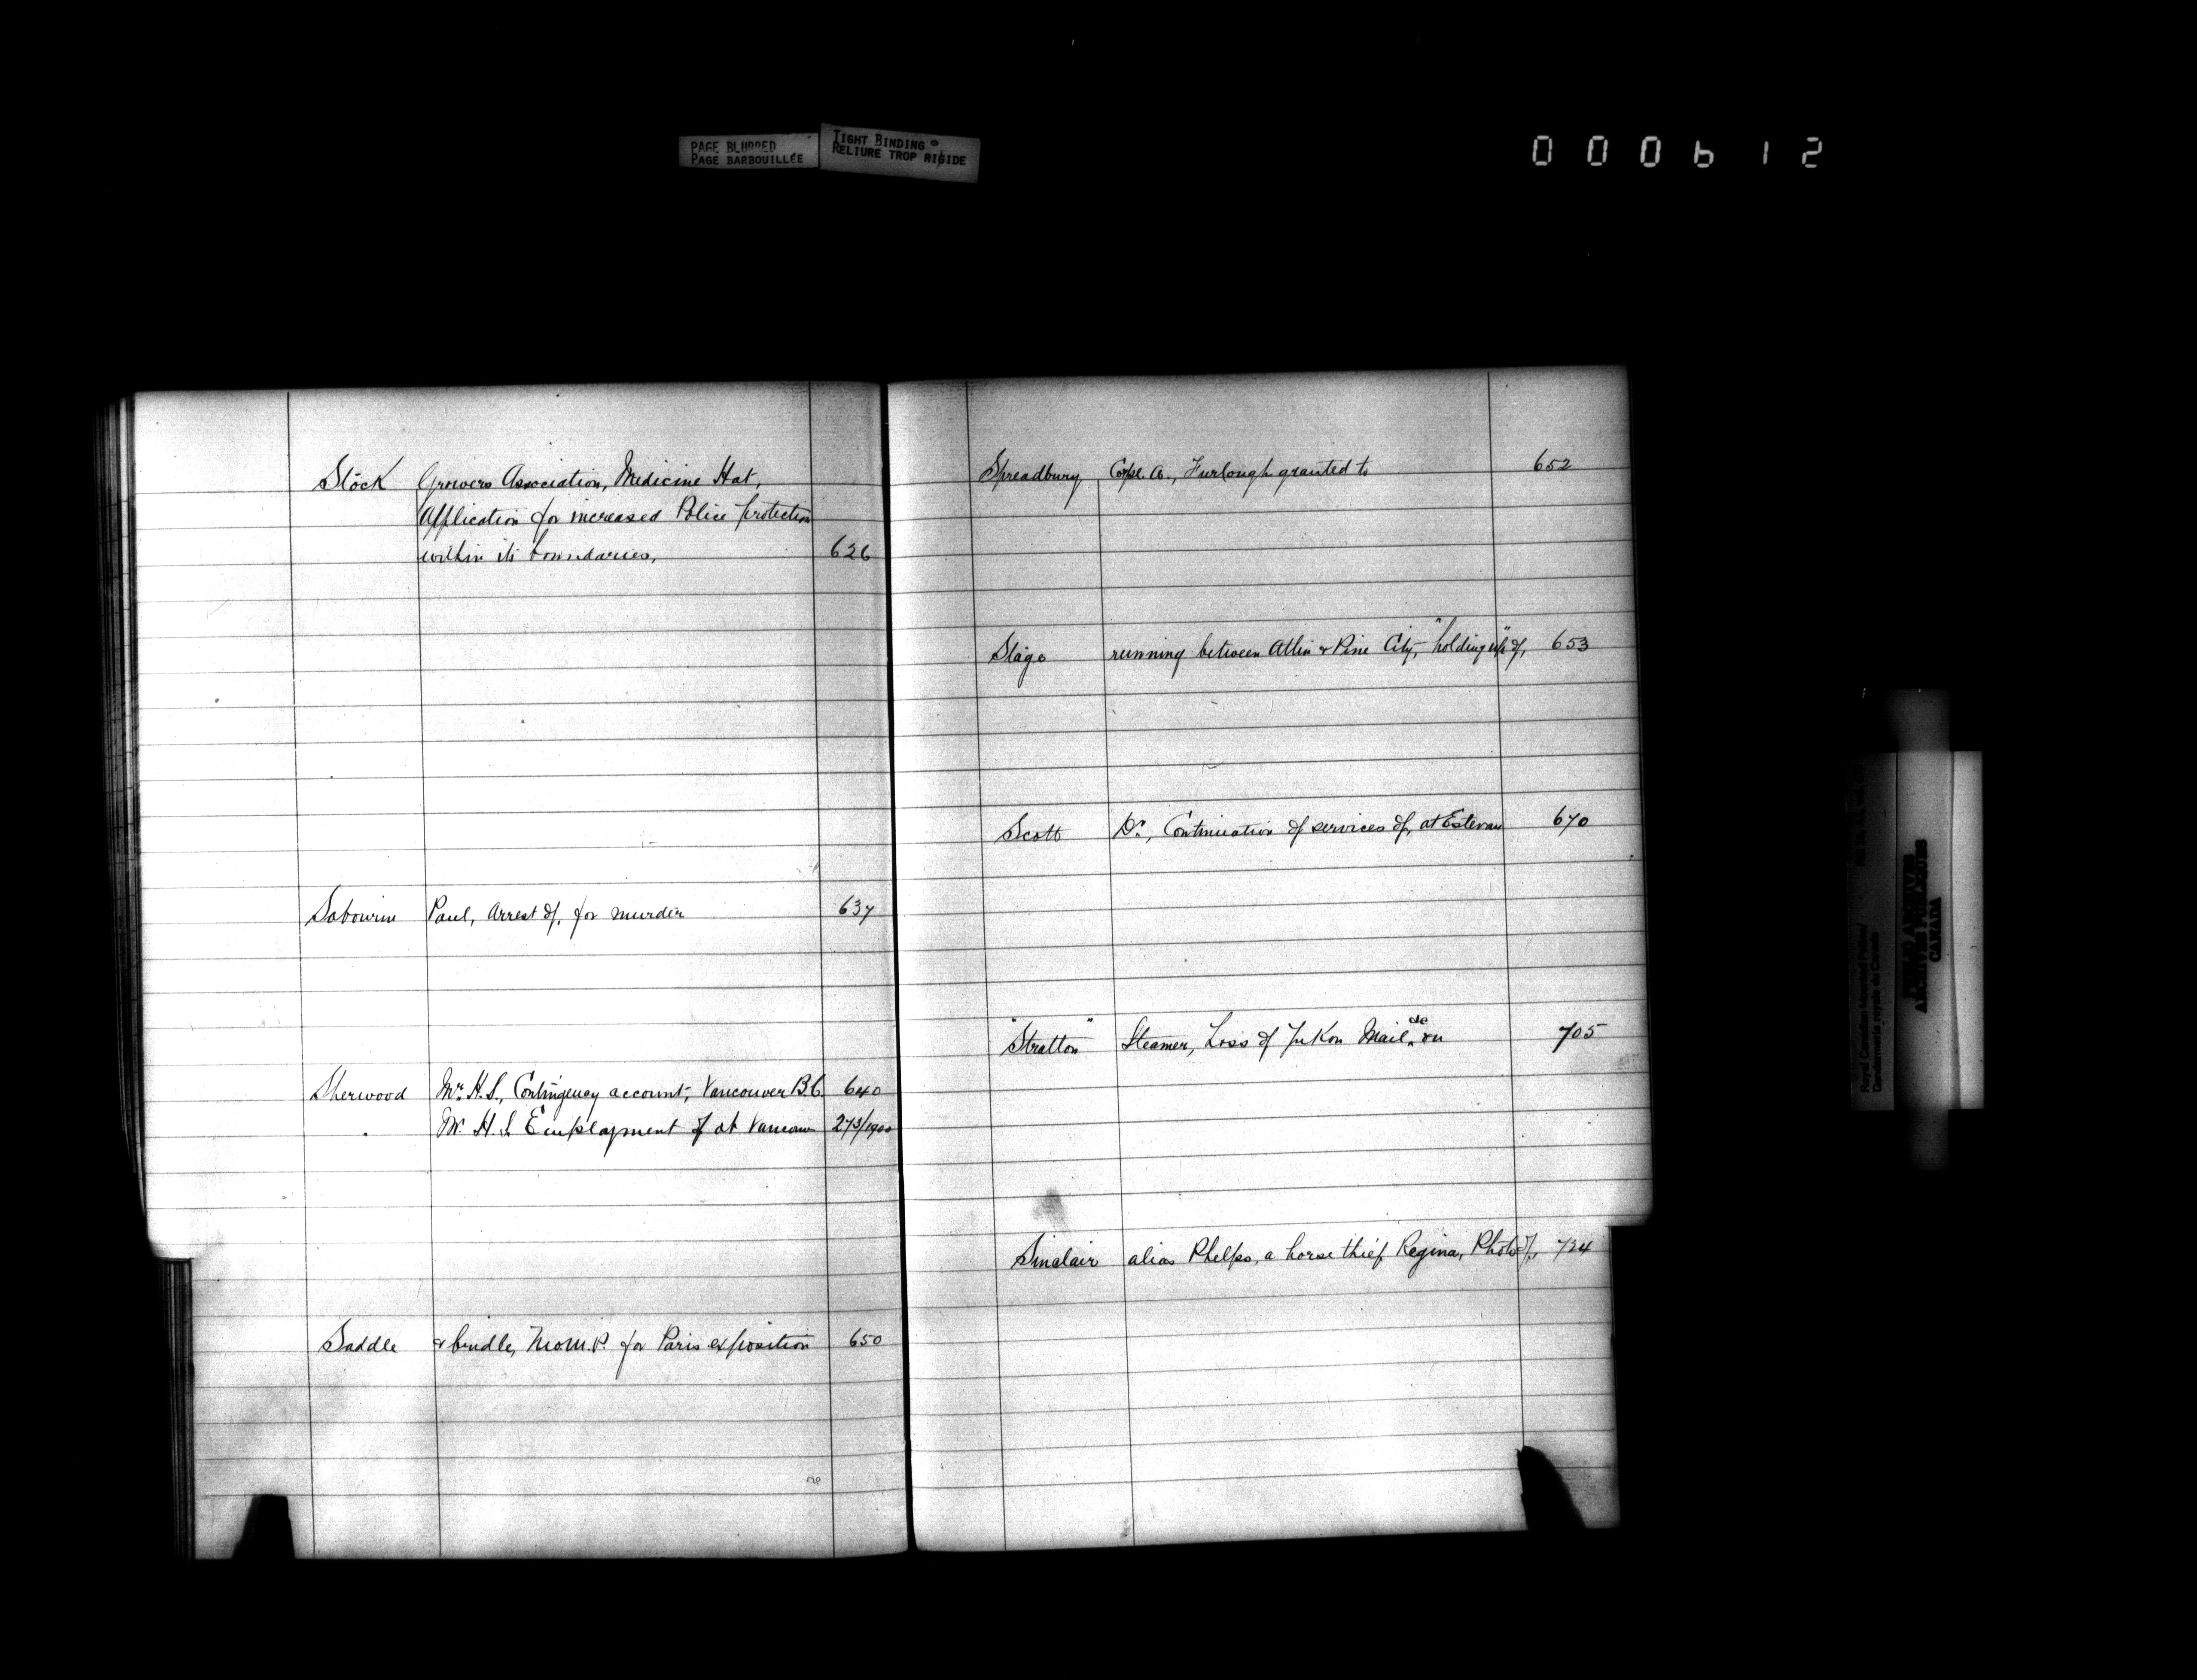 PAGE BLURRED
PAGE BARBOUILLÉE
TIGHT BINDING
RELIURE TROP RIGIDE
000612
Stock Growers Association, Medicine Hat,
Application for increased Police protection
within its boundaries, 626
Sabourin Paul, Arrest of, for murder 637
Sherwood Mr. H.S., Contingency account, Vancouver B.C. 640
" Mr. H.S. Employment of at Vancouver 273/1900
Saddle & bridle, N.W.M.P. for Paris exposition 650
Spreadbury Corpl. A., Furlough granted to 652
Stage running between Atlin & Pine City, "holding up" of, 653
Scott Dr., Continuation of services of, at Estevan 670
"Stratton" Steamer, Loss of Yukon Mail &c on 705
Sinclair alias Phelps, a horse thief Regina, Photo of, 734
Royal Canadian Mounted Police/
Gendarmerie royale du Canada
PUBLIC ARCHIVES
ARCHIVES PUBLIQUES
CANADA